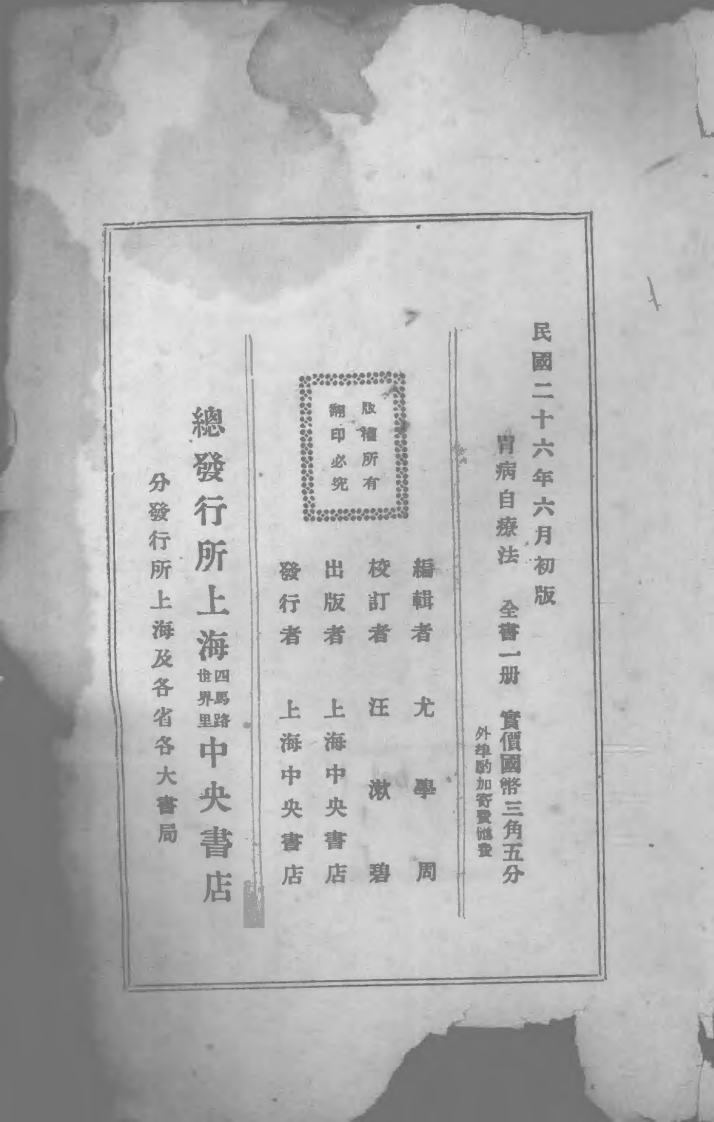 民國二十六年六月初版
胃病自療法 全書一册 實價國幣三角五分
外埠酌加寄費匯費
編輯者 尤學周
校訂者 汪漱碧
出版者 上海中央書店
發行者 上海中央書店
版權所有
翻印必究
總發行所上海四馬路世界里中央書店
分發行所上海及各省各大書局